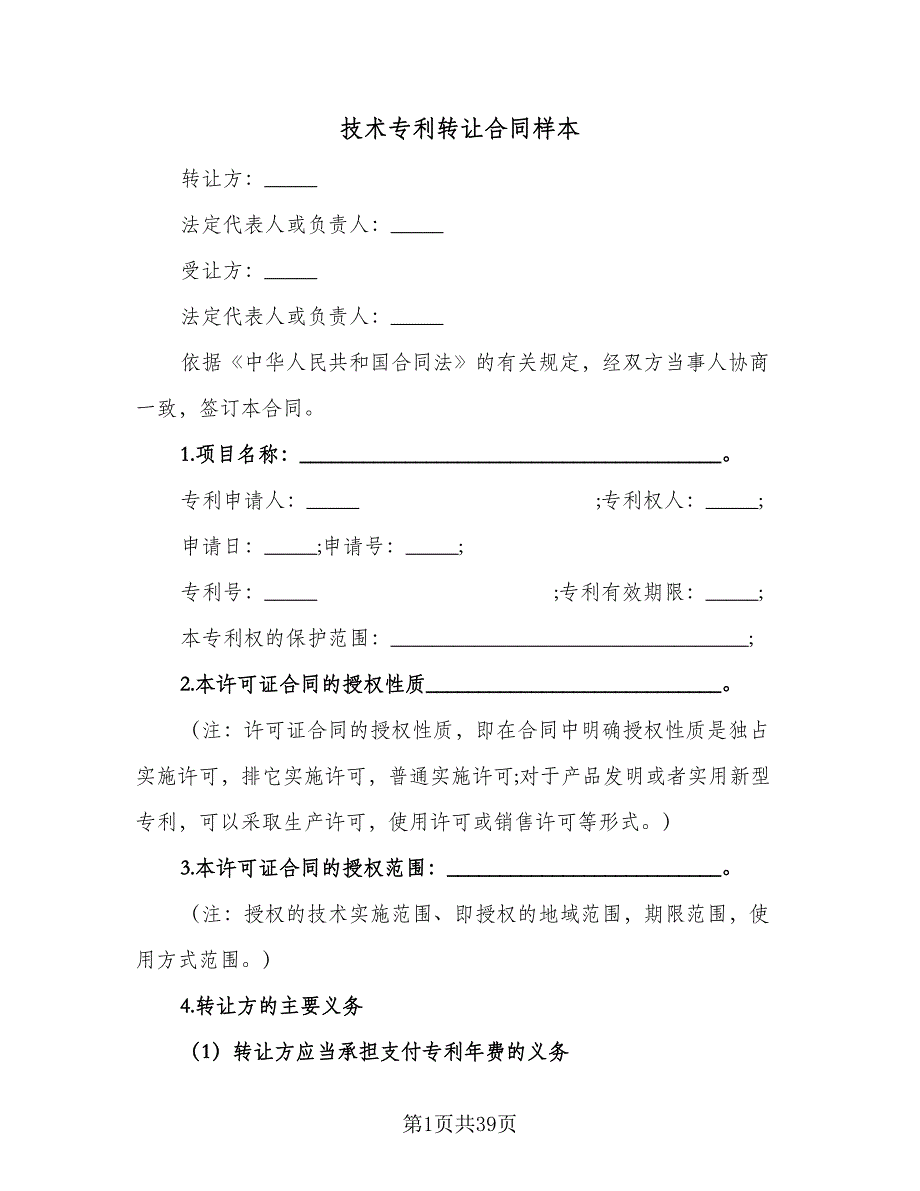 技术专利转让合同样本
转让方：_____
法定代表人或负责人：_____
受让方：_____
法定代表人或负责人：_____
依据《中华人民共和国合同法》的有关规定，经双方当事人协商
一致，签订本合同。
1.项目名称：________________________________________。
专利申请人：_____ ;专利权人：_____;
申请日：_____;申请号：_____;
专利号：_____ ;专利有效期限：_____;
本专利权的保护范围：__________________________________;
2.本许可证合同的授权性质____________________________。
（注：许可证合同的授权性质，即在合同中明确授权性质是独占
实施许可，排它实施许可，普通实施许可;对于产品发明或者实用新型
专利，可以采取生产许可，使用许可或销售许可等形式。）
3.本许可证合同的授权范围：__________________________。
（注：授权的技术实施范围、即授权的地域范围，期限范围，使
用方式范围。）
4.转让方的主要义务
（1）转让方应当承担支付专利年费的义务
第1页共39页